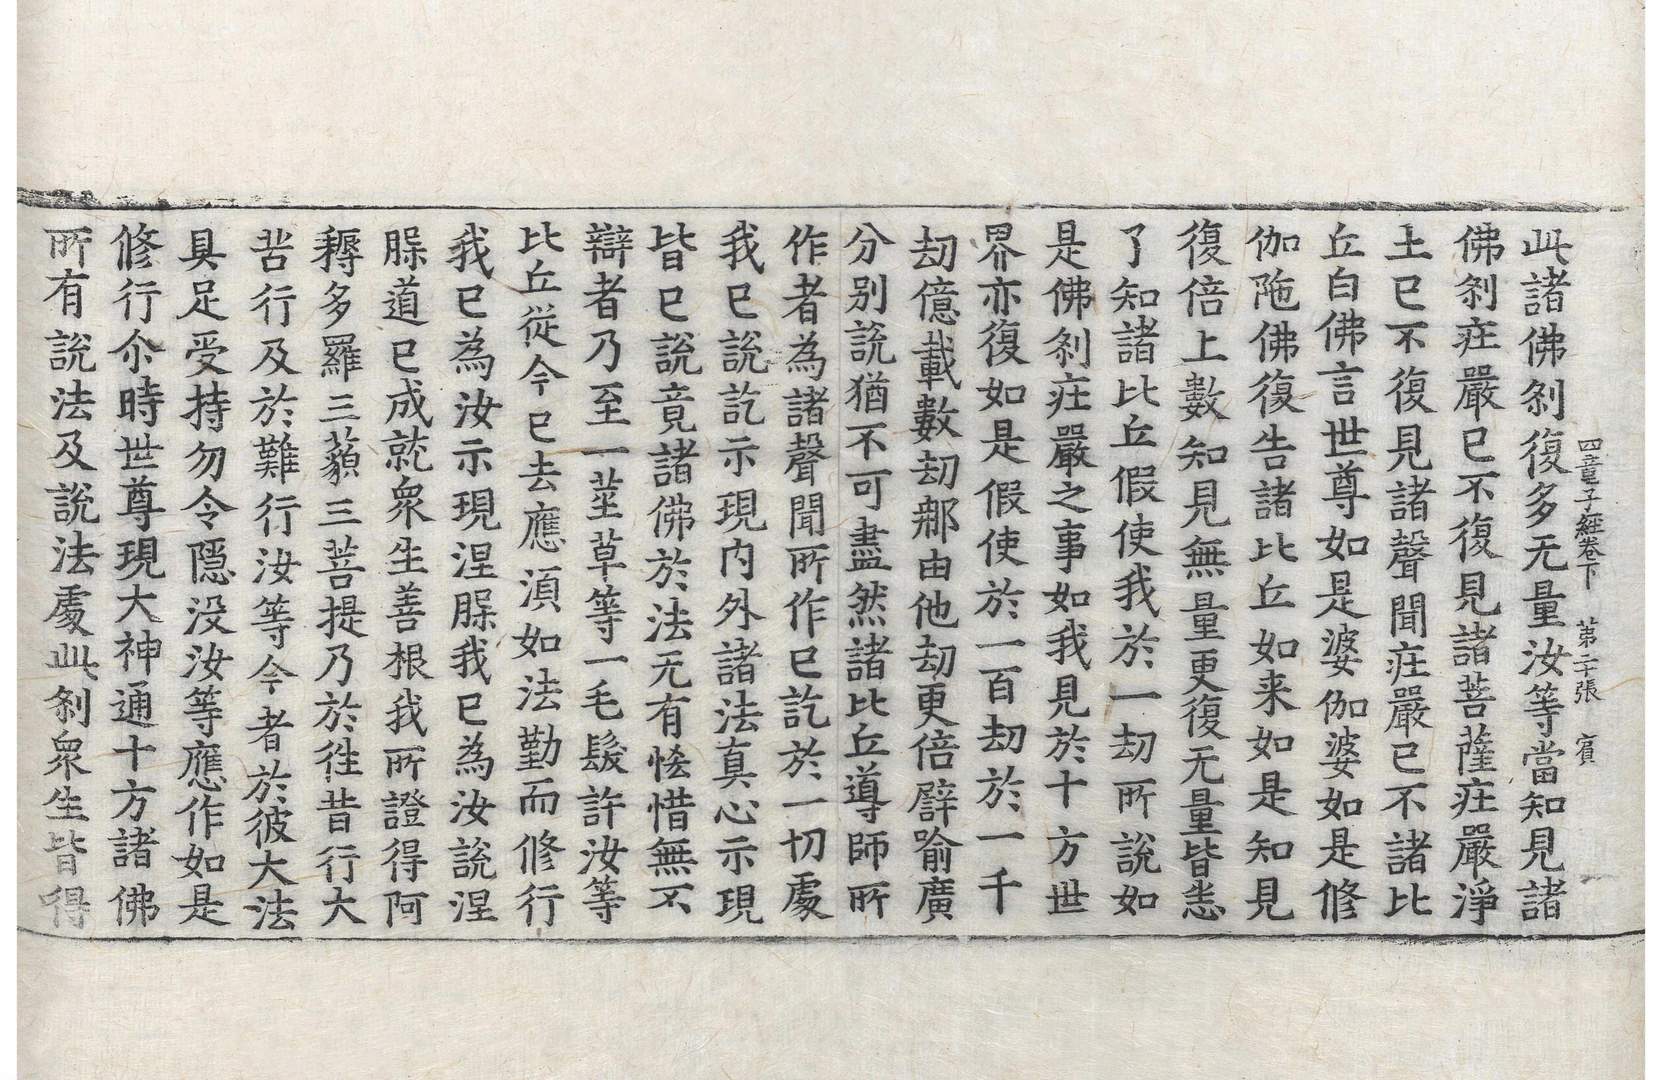 四童子經卷下　第二十張　賓
此諸佛刹復多无量汝等當知見諸
佛刹莊嚴已不復見諸菩薩莊嚴淨
土已不復見諸聲聞莊嚴已不諸比
丘白佛言世尊如是婆伽婆如是修
伽陁佛復告諸比丘如来如是知見
復倍上數知見無量更復无量皆悉
了知諸比丘假使我於一劫所說如
是佛刹莊嚴之事如我見於十方世
界亦復如是假使於一百劫於一千
劫億載數劫那由他劫更倍譬喻廣
分别說猶不可盡然諸比丘導師所
作者為諸聲聞所作已訖於一切處
我已說訖示現内外諸法真心示現
皆已說竟諸佛於法无有悋惜無不
辯者乃至一莖草等一毛髮許汝等
比丘從今已去應湏如法勤而修行
我已為汝示現涅槃我已為汝說涅
槃道已成就衆生善根我所證得阿
耨多羅三藐三菩提乃於往昔行大
苦行及於難行汝等今者於彼大法
具足受持勿令隱没汝等應作如是
修行尒時世尊現大神通十方諸佛
所有說法及說法處此刹衆生皆得